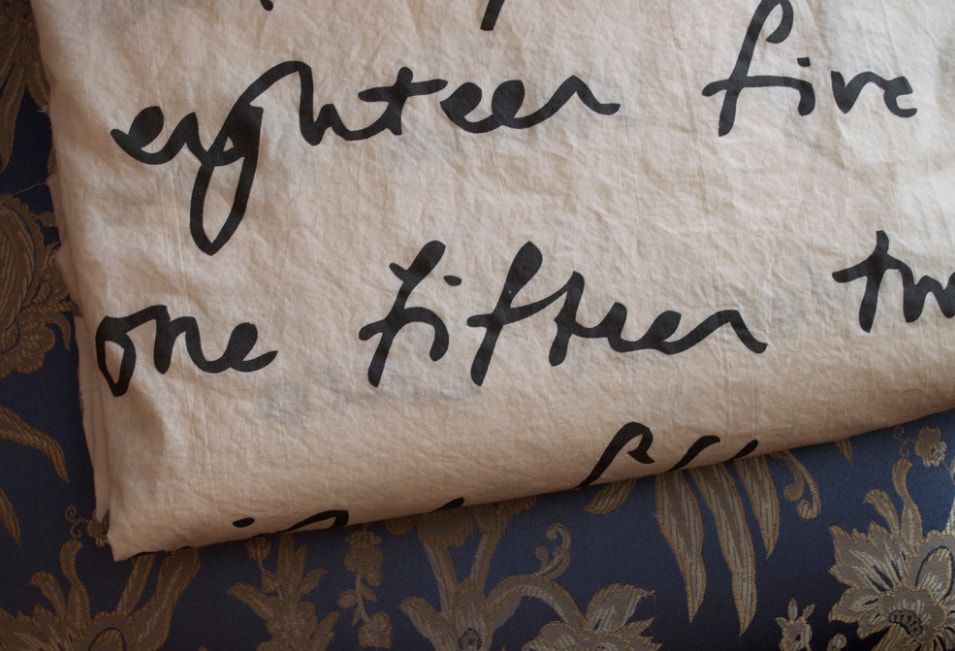 eighteen five
one fifteen